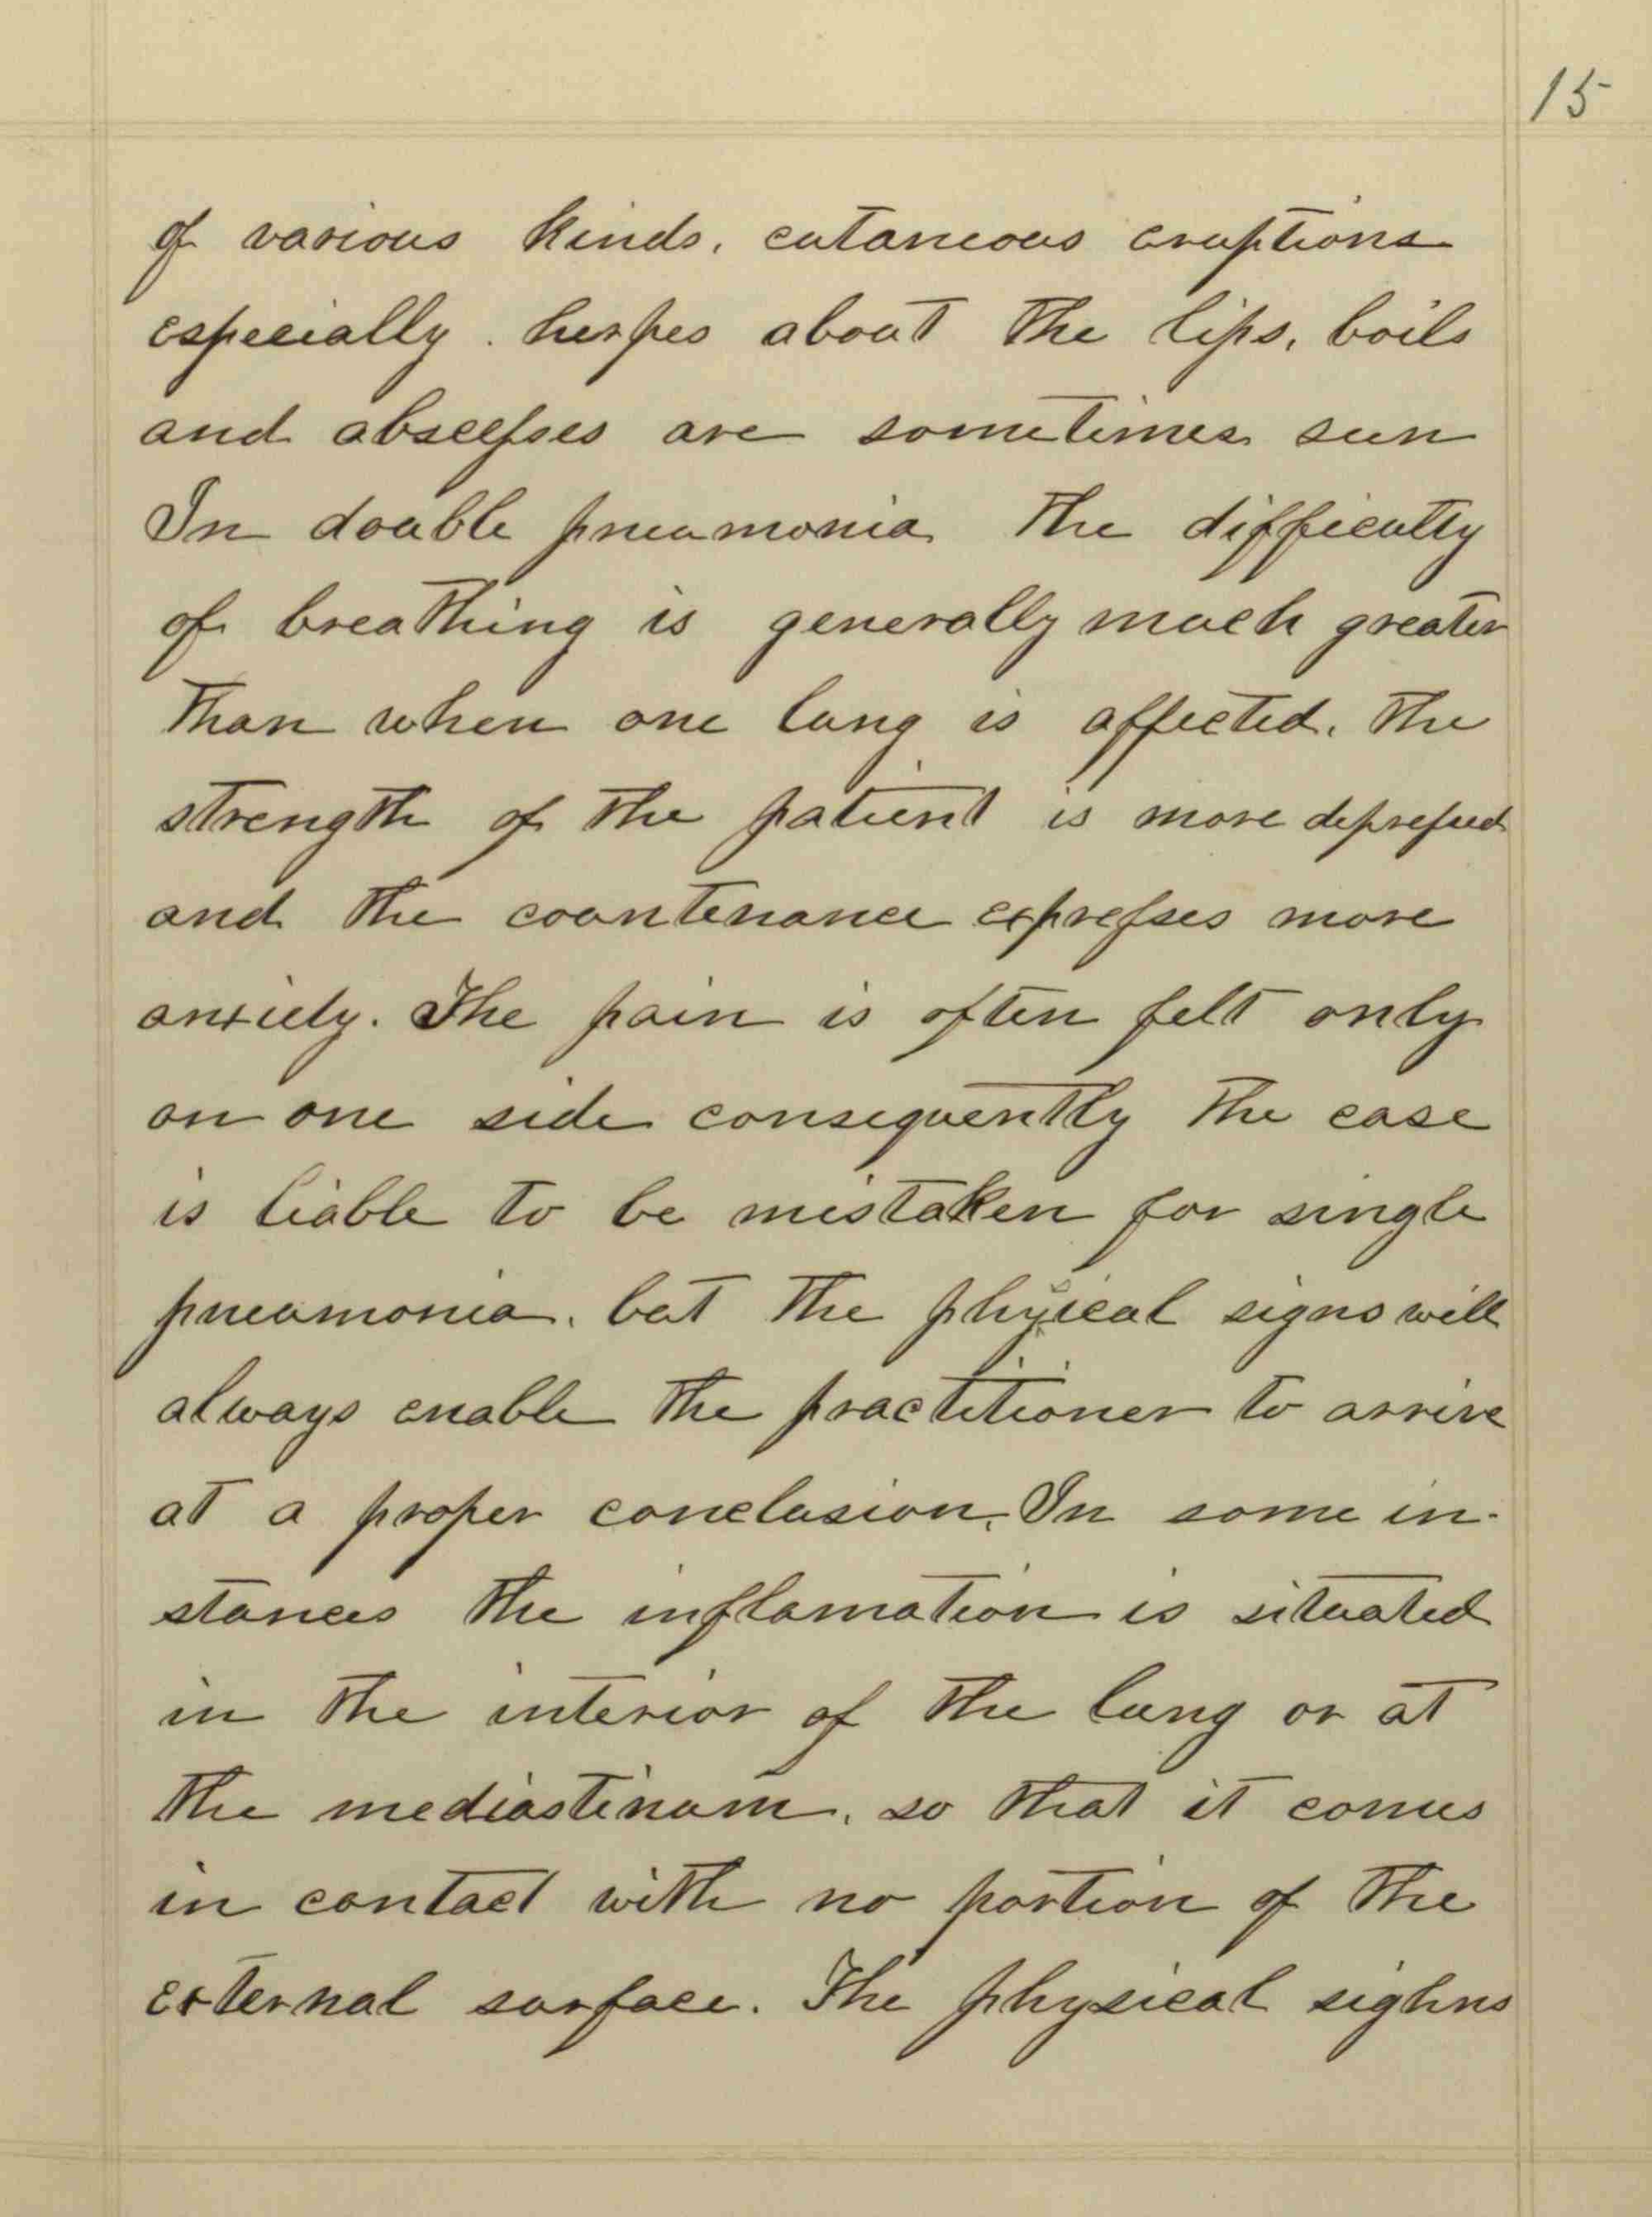 15
of various kinds, cutaneous eruptions
especially. herpes about the lips, boils
and abscesses are sometimes seen
In double pneumonia the difficulty
of breathing is generally much greater
than when one lung is affected. The
strength of the patient is more depressed
and the countenance expresses more
anxiety. The pain is often felt only
on one side consequently the case
is liable to be mistaken for single
pneumonia, but the physical signs will
always enable the practitioner to arrive
at a proper conclusion. In some in-
stances the inflamation is situated
in the interior of the lung or at
the mediastinum, so that it comes
in contact with no portion of the
external surface. The physical sighns